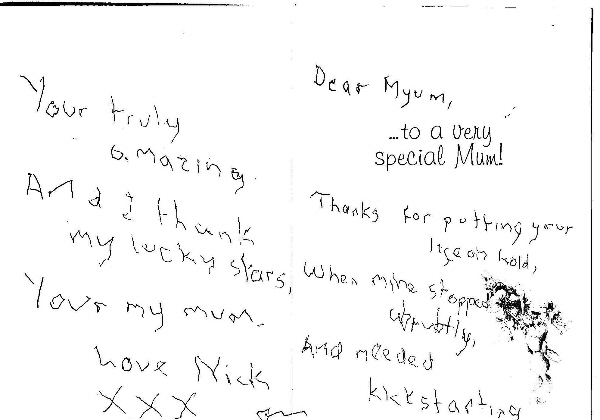 Dear Myum,
...to a very
special Mum!
Thanks for putting your
life on hold,
When mine stopped
abruptly,
And needed
kickstarting
Your truly
amazing.
And I thank
my lucky stars,
Your my mum.
Love Nick
XXX